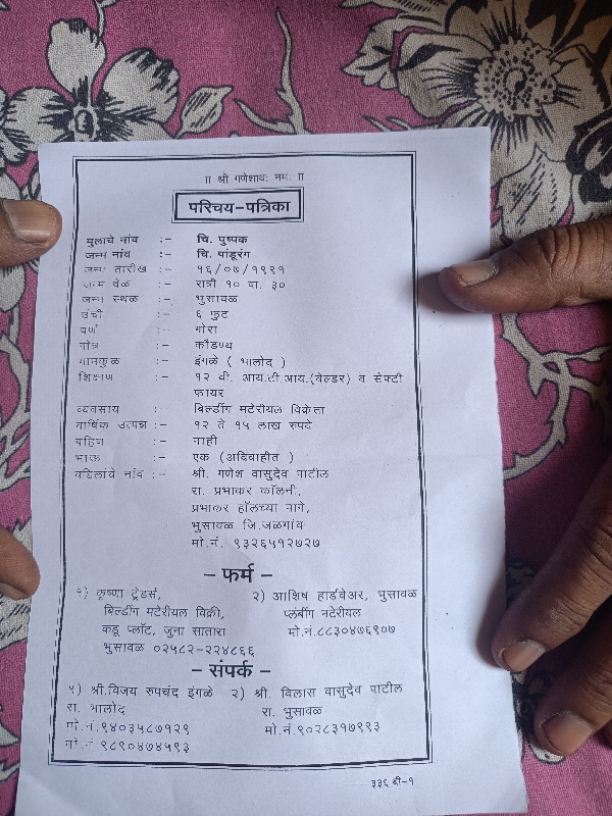 ॥ श्री गणेशायः नमः ॥
परिचय-पत्रिका
मुलाचे नांव :- चि. पुष्पक
जन्म नांव :- चि. पांडूरंग
जन्म तारीख :- १६/०७/१९९१
जन्म वेळ :- रात्री १० वा. ३०
जन्म स्थळ :- भुसावळ
उंची :- ६ फुट
वर्ण :- गोरा
गोत्र :- कौडण्य
मामकुळ :- इंगळे ( भालोद )
शिक्षण :- १२ वी. आय.टी.आय.(वेल्डर) व सेफ्टी
फायर
व्यवसाय :- बिल्डींग मटेरीयल विक्रेता
वार्षिक उत्पन्न :- १२ ते १५ लाख रुपये
बहिण :- नाही
भाऊ :- एक (अविवाहीत )
वडिलांचे नांव :- श्री. गणेश वासुदेव पाटील
रा. प्रभाकर कॉलनी,
प्रभाकर हॉलच्या मागे,
भुसावळ जि.जळगांव
मो.नं. ९३२६५१२७२७
- फर्म -
१) कृष्णा ट्रेडर्स, २) आशिष हार्डवेअर, भुसावळ
बिल्डींग मटेरीयल विक्री, प्लंबींग मटेरीयल
कडू प्लॉट, जुना सातारा मो.नं.८८३०४७६९०७
भुसावळ ०२५८२-२२४८६६
- संपर्क -
१) श्री.विजय रुपचंद इंगळे २) श्री. विलास वासुदेव पाटील
रा. भालोद रा. भुसावळ
मो.नं.९४०३५८७१२९ मो.नं.९०२८३१७९९३
मो.नं.९८९०४७४५९३
३३६ बी-१